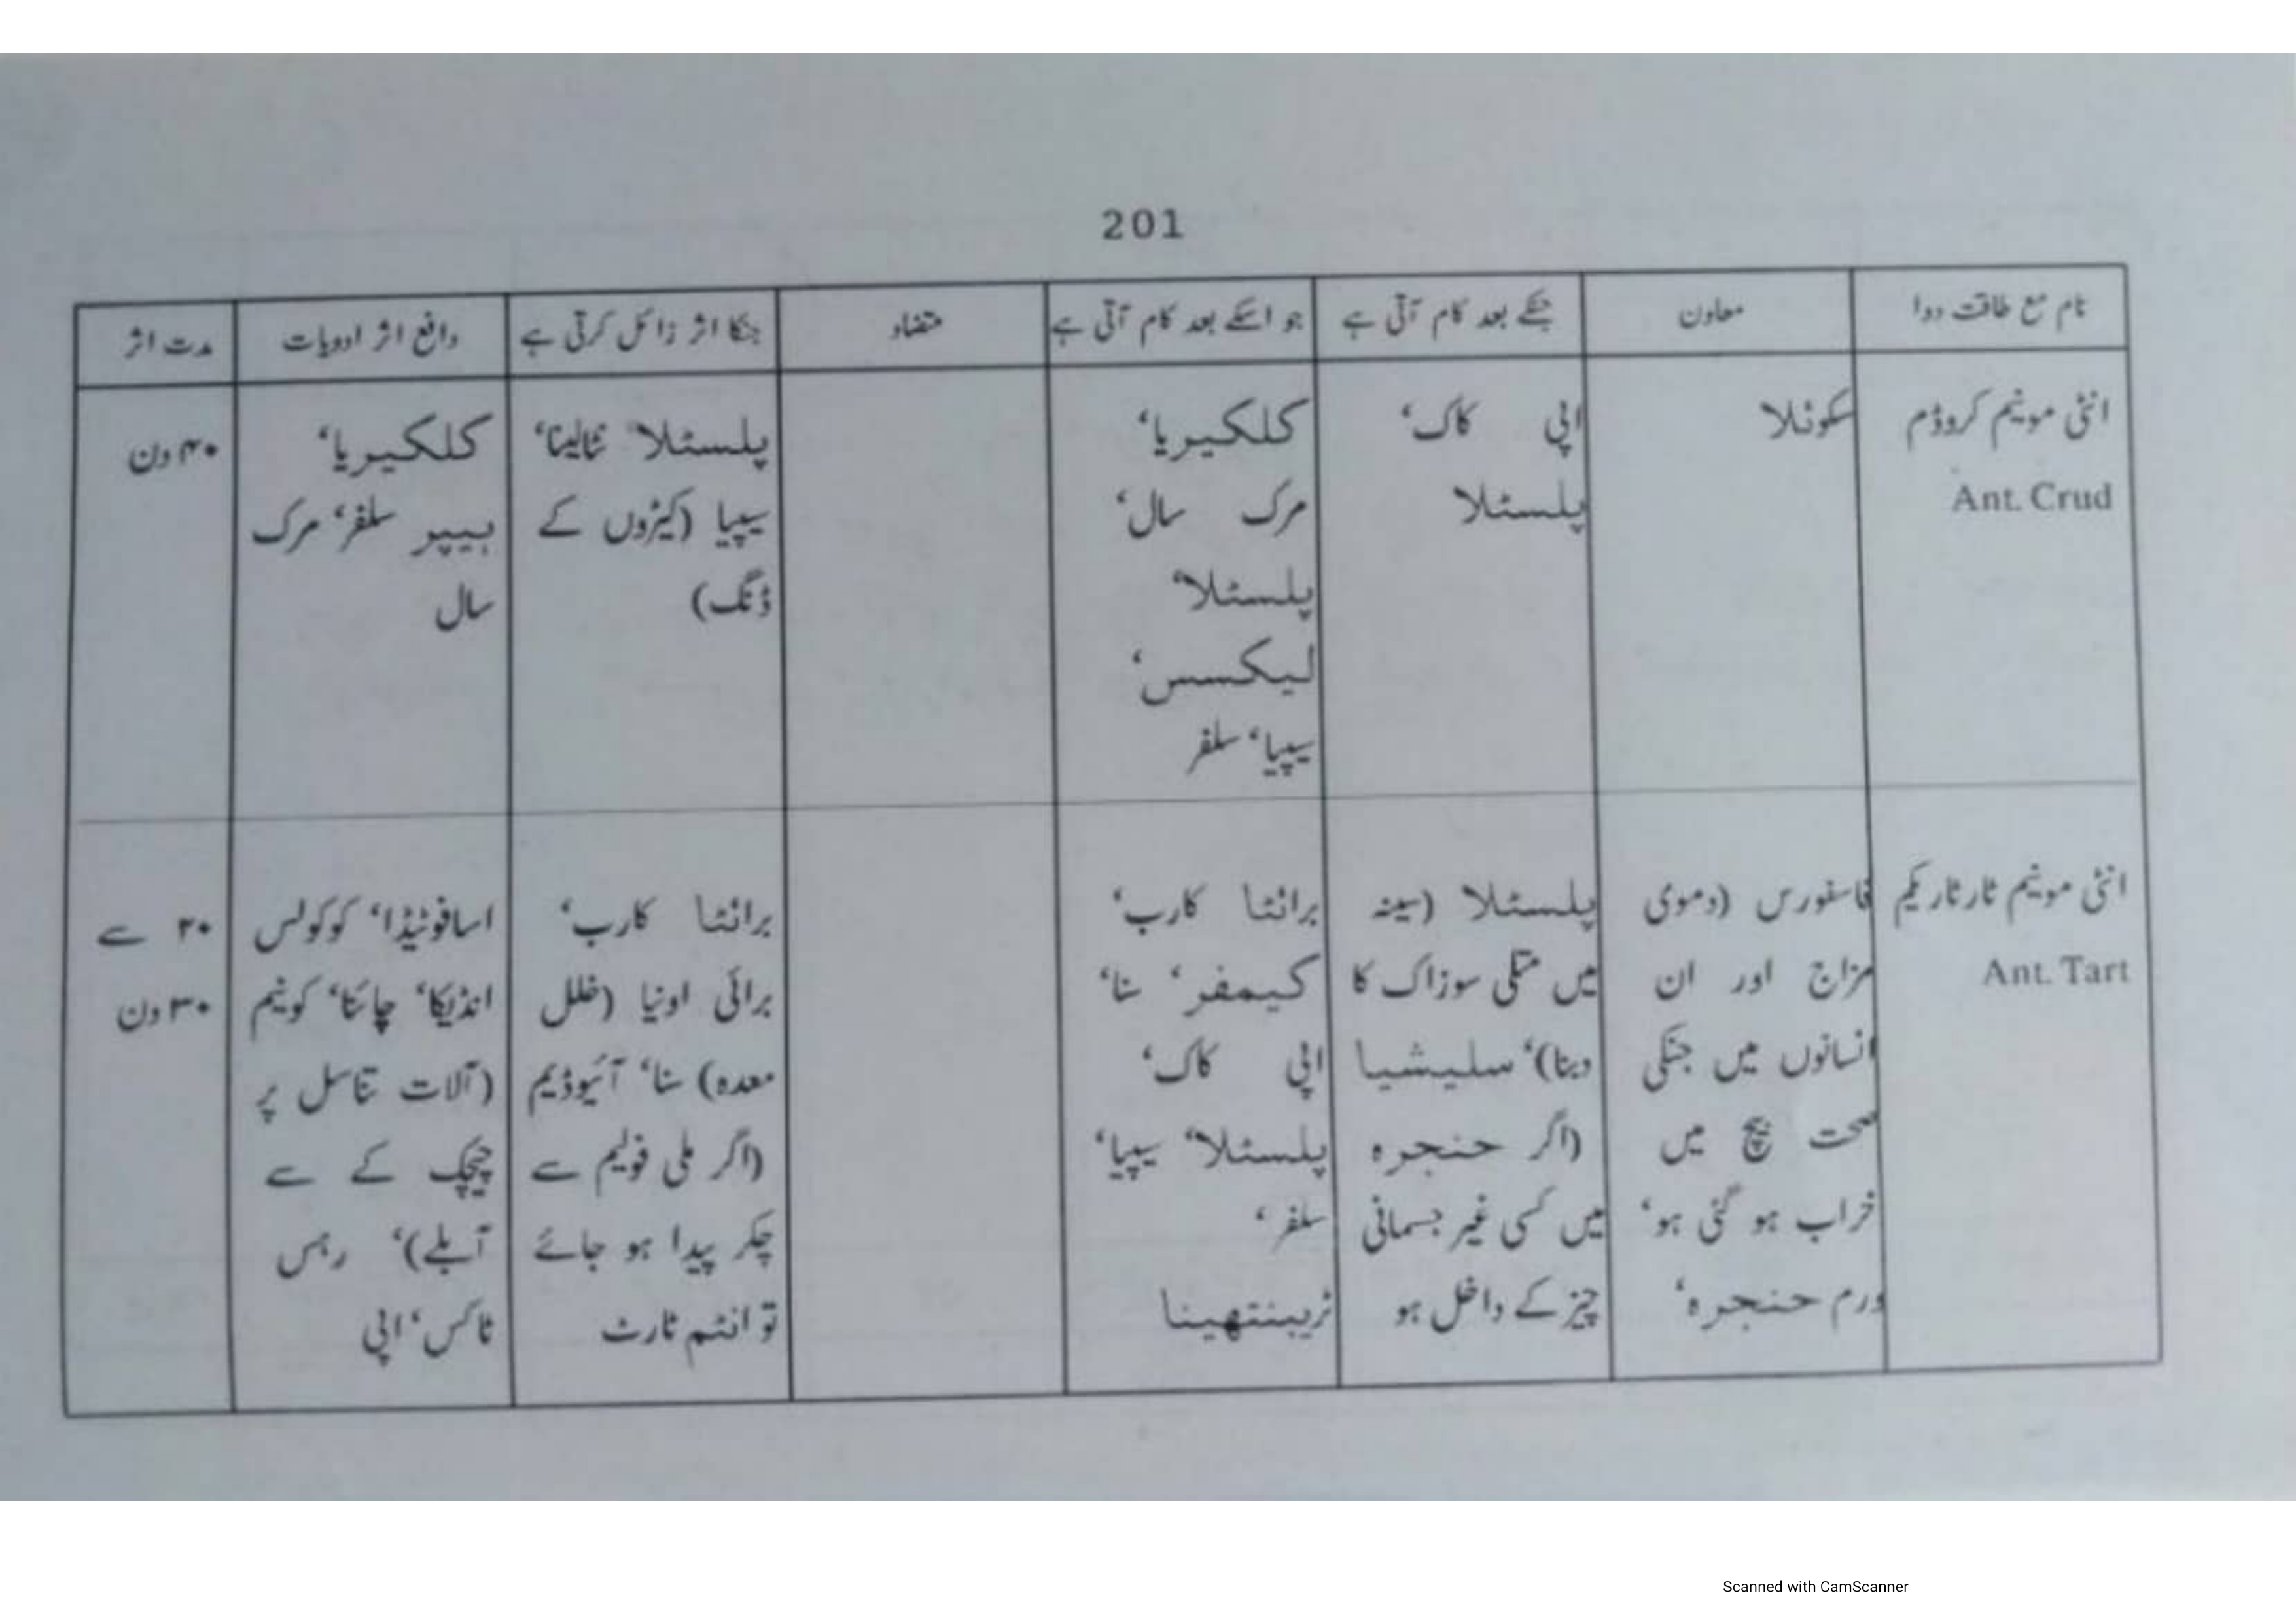 201
نام مع طاقت دوا
معاون
جنکے بعد کام آتی ہے
جو اسکے بعد کام آتی ہے
متضاد
جنکا اثر زائل کرتی ہے
دافع اثر ادویات
مدت اثر
انٹی مونیم کروڈم
Ant. Crud
سکوئلا
اپی کاک‘
پلسٹلا
کلکیریا‘
مرک سال‘
پلسٹلا‘
لیکسس‘
سیپیا‘ سلفر
پلسٹلا نٹالینا‘
سیپیا (کیڑوں کے
ڈنگ)
کلکیریا‘
ہیپر سلفر‘ مرک
سال
۴۰ دن
انٹی مونیم ٹارٹاریکم
Ant. Tart
فاسفورس (دموی
مزاج اور ان
انسانوں میں جنکی
صحت بیچ میں
خراب ہو گئی ہو‘
ورم حنجرہ‘
پلسٹلا (سینہ
میں متلی سوزاک کا
دبنا)‘ سلیشیا
(اگر حنجرہ
میں کسی غیر جسمانی
چیز کے داخل ہو
برائٹا کارب‘
کیمفر‘ سنا‘
اپی کاک‘
پلسٹلا‘ سیپیا‘
سلفر‘
ٹریبنتھینا
برائٹا کارب‘
برائی اونیا (خلل
معدہ) سنا‘ آئیوڈیم
(اگر ملی فولیم سے
چکر پیدا ہو جائے
تو انٹم ٹارٹ
اسافوٹیڈا‘ کوکولس
انڈیکا‘ چائنا‘ کونیم
(آلات تناسل پر
چیچک کے سے
آبلے)‘ رہس
ٹاکس‘ اپی
۲۰ سے
۳۰ دن
Scanned with CamScanner